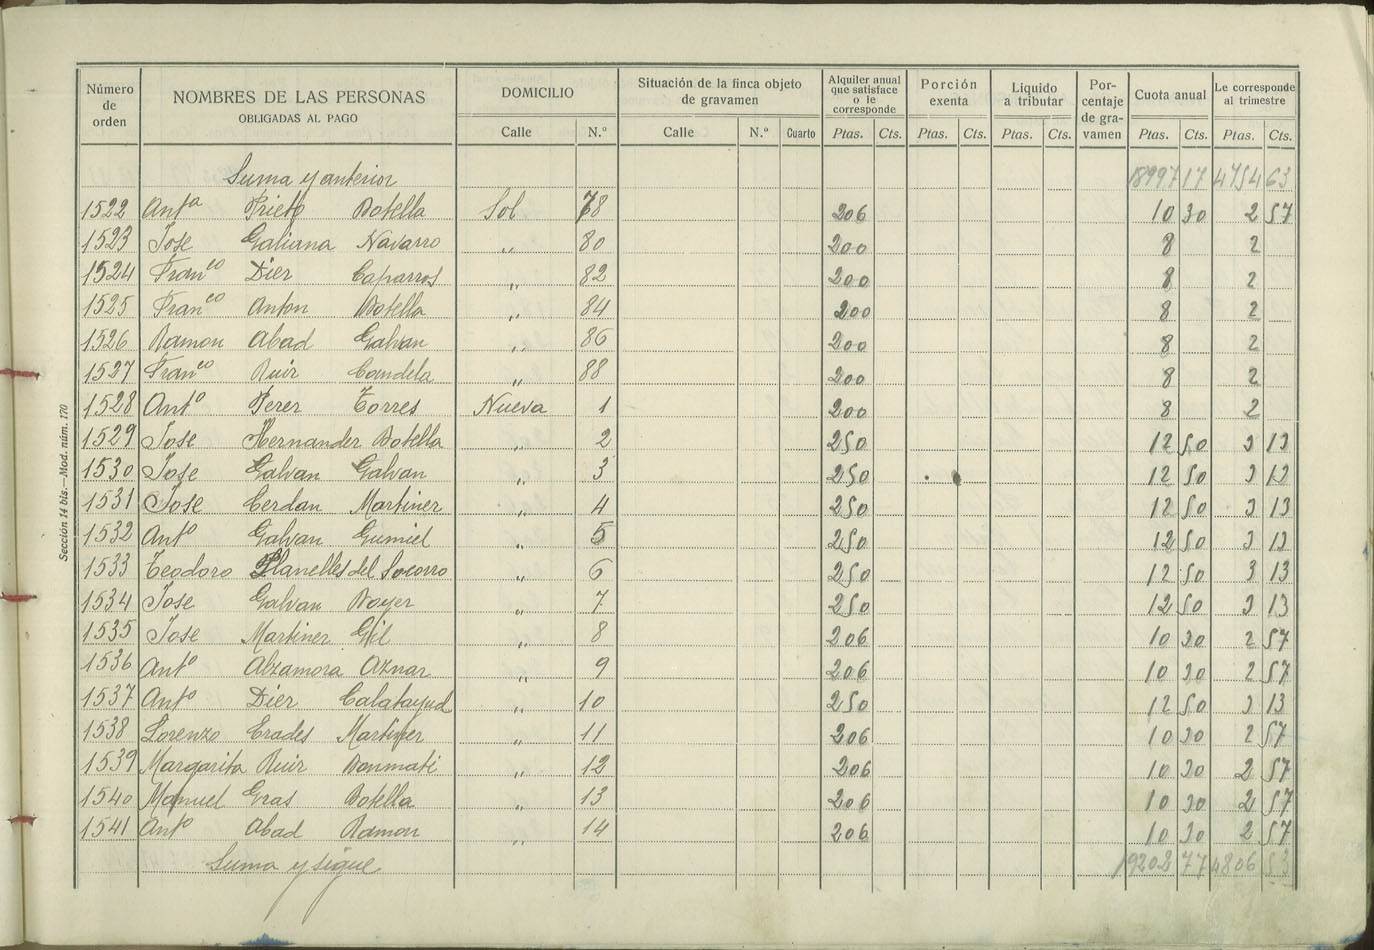 Número de orden NOMBRES DE LAS PERSONAS OBLIGADAS AL PAGO DOMICILIO Situación de la finca objeto de gravamen Alquiler anual que satisface o le corresponde Porción exenta Líquido a tributar Porcentaje de gravamen Cuota anual Le corresponde al trimestre
Calle N.º Calle N.º Cuarto Ptas. Cts. Ptas. Cts. Ptas. Cts. Ptas. Cts. Ptas. Cts.
Suma y anterior 18997 17 4754 63
1522 Antª Prieto Botella Sol 78 206 10 30 2 57
1523 Jose Galiana Navarro " 80 200 8 2
1524 Franco Dier Caparros " 82 200 8 2
1525 Franco Anton Botella " 84 200 8 2
1526 Ramon Abad Galvan " 86 200 8 2
1527 Franco Ruir Candela " 88 200 8 2
1528 Antº Perer Torres Nueva 1 200 8 2
1529 Jose Hernander Botella " 2 250 12 50 3 13
1530 Jose Galvan Galvan " 3 250 12 50 3 13
1531 Jose Cerdan Martiner " 4 250 12 50 3 13
1532 Antº Galvan Gumiel " 5 250 12 50 3 13
1533 Teodoro Planelles del Socorro " 6 250 12 50 3 13
1534 Jose Galvan Boyer " 7 250 12 50 3 13
1535 Jose Martiner Gil " 8 206 10 30 2 57
1536 Antº Alzamora Aznar " 9 206 10 30 2 57
1537 Antº Dier Calatayud " 10 250 12 50 3 13
1538 Lorenzo Crades Martiner " 11 206 10 30 2 57
1539 Margarita Ruir Bonmati " 12 206 10 30 2 57
1540 Manuel Gras Botella " 13 206 10 30 2 57
1541 Antº Abad Ramon " 14 206 10 30 2 57
Suma y sigue 19202 77 4806 53
Sección 14 bis.—Mod. núm. 170